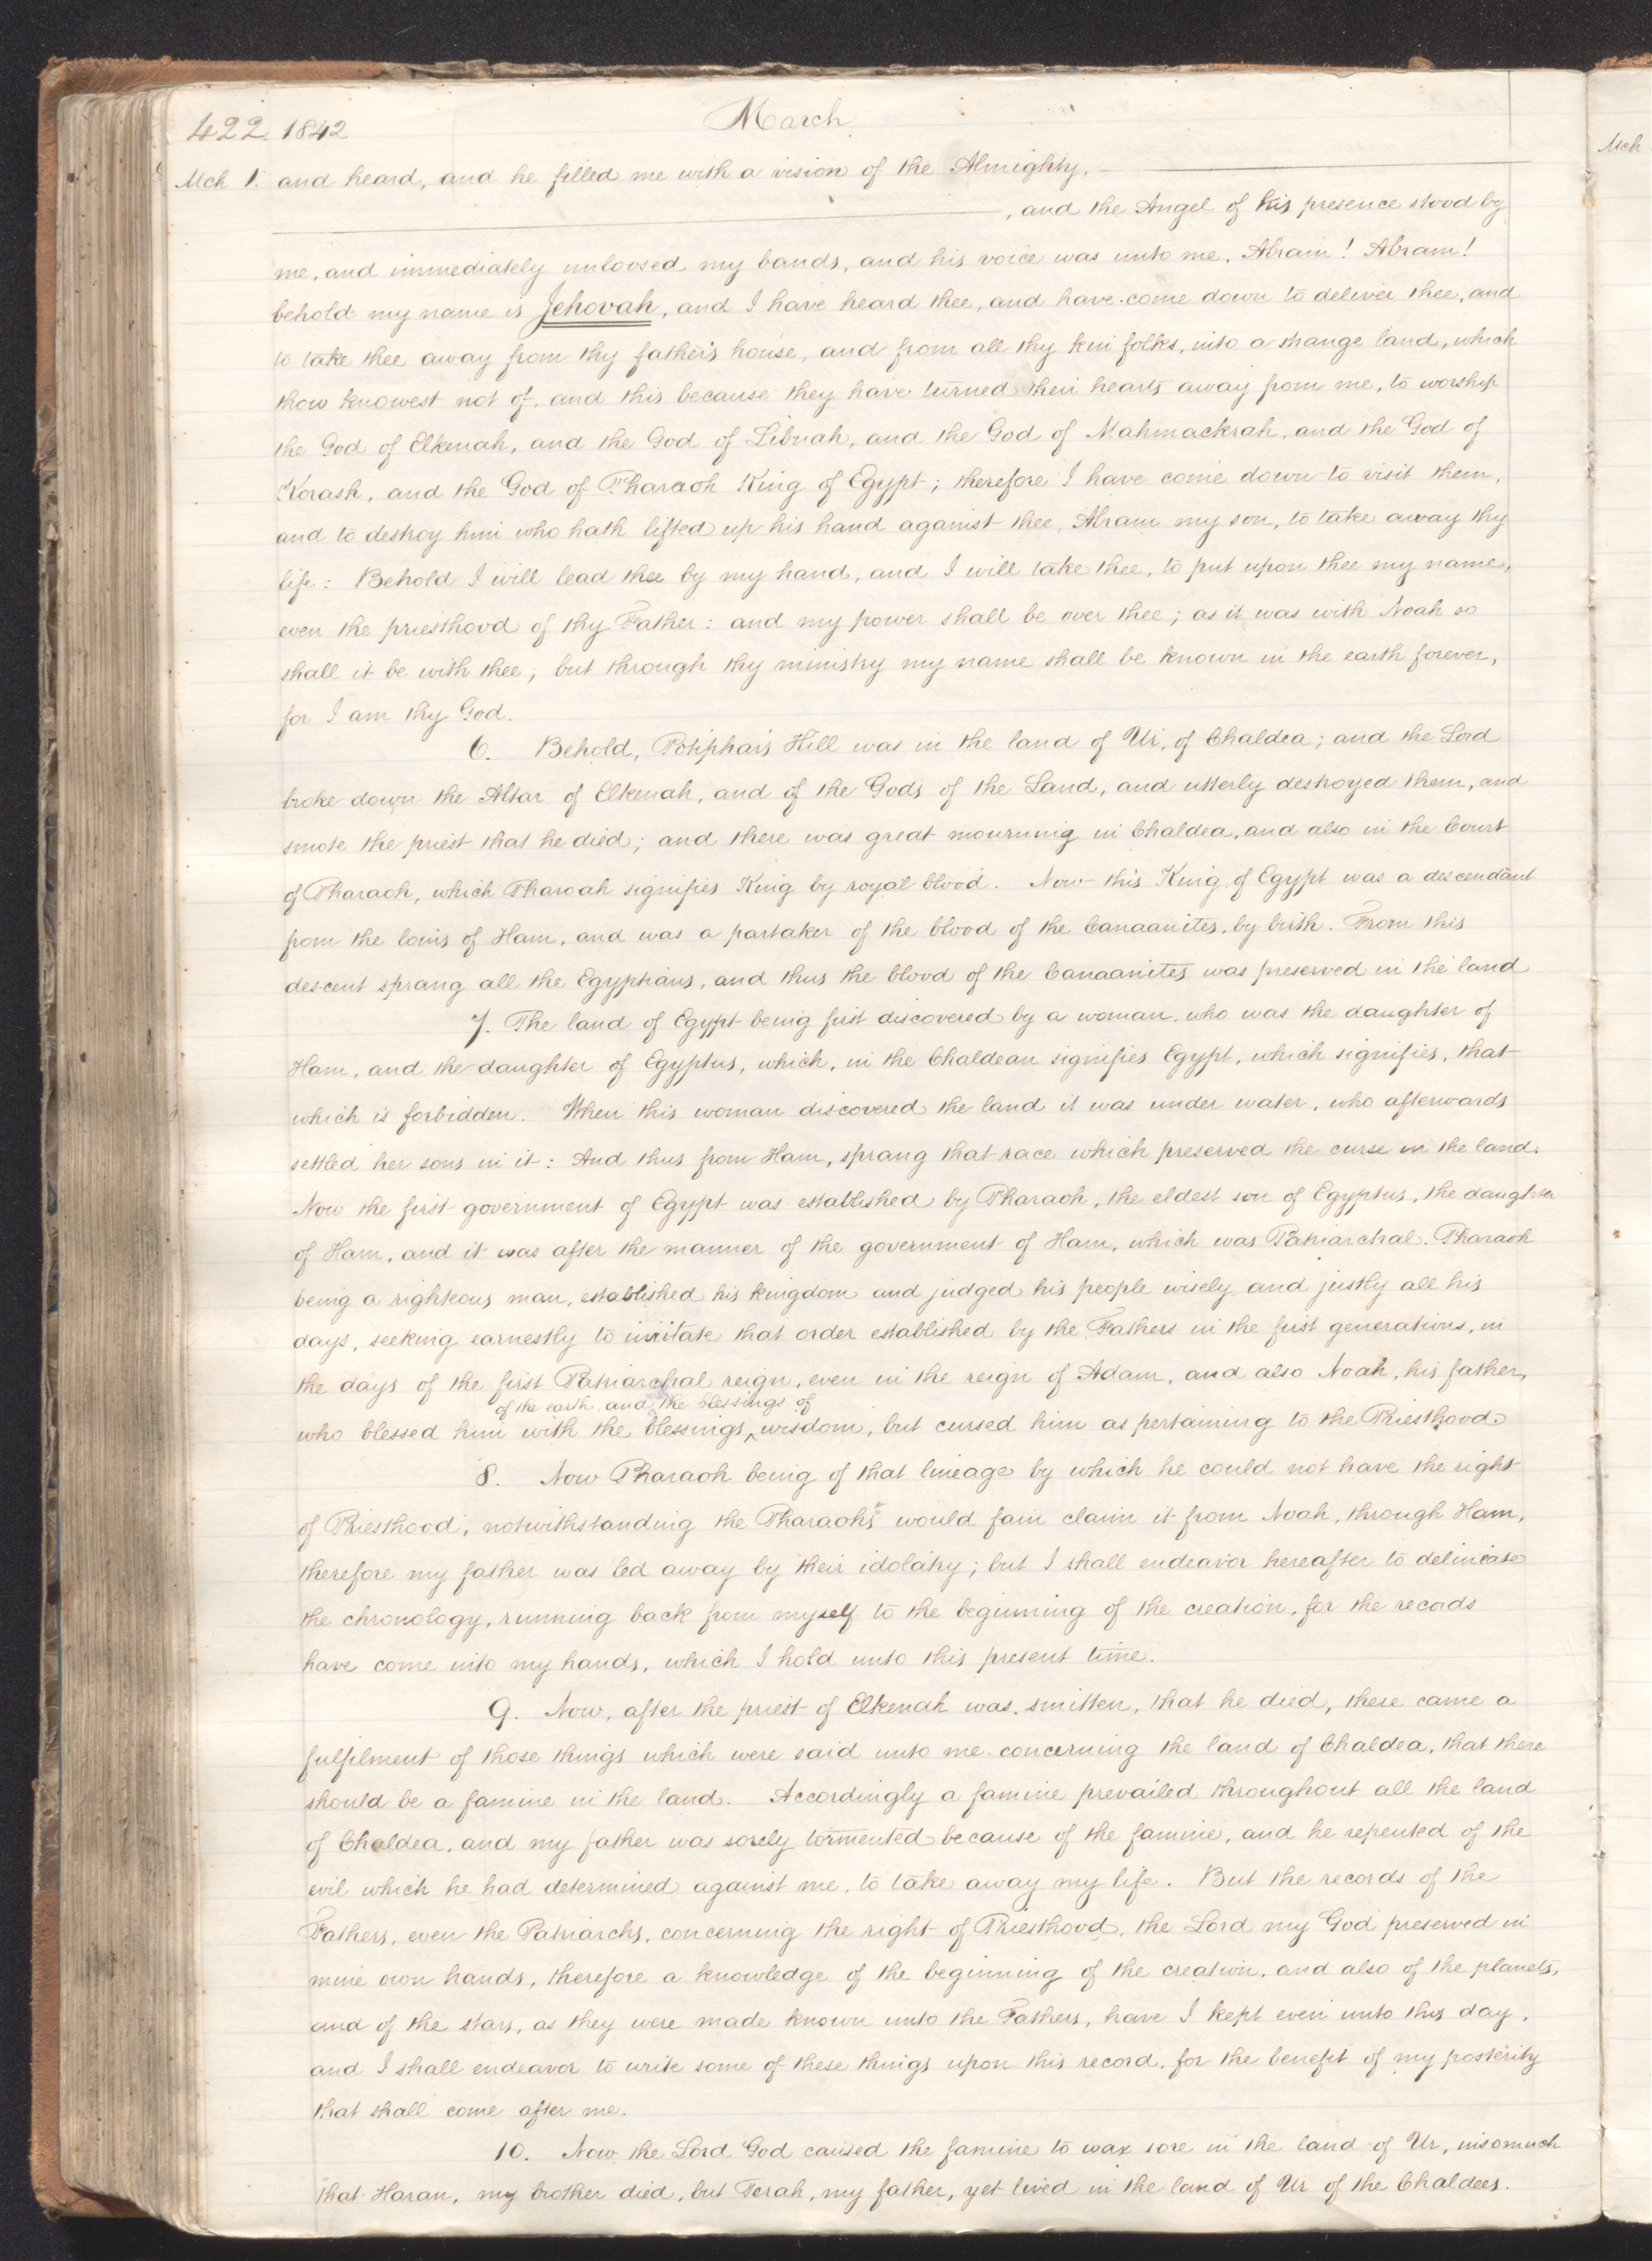 422. 1842
March
Mch 1. and heard, and he filled me with a vision of the Almighty,
, and the Angel of his presence stood by
me, and immediately unloosed my bands, and his voice was unto me, Abram! Abram!
behold my name is Jehovah, and I have heard thee, and have come down to deliver thee, and
to take thee away from thy father's house, and from all thy kin folks, into a strange land, which
thow knowest not of, and this because they have turned their hearts away from me, to worship
the God of Elkenah, and the God of Libnah, and the God of Mahmackrah, and the God of
Korash, and the God of Pharaoh King of Egypt; therefore I have come down to visit them,
and to destroy him who hath lifted up his hand against thee, Abram my son, to take away thy
life: Behold I will lead thee by my hand, and I will take thee, to put upon thee my name,
even the priesthood of thy Father: and my power shall be over thee; as it was with Noah so
shall it be with thee; but through thy ministry my name shall be known in the earth forever,
for I am thy God.
6. Behold, Potiphar's Hill was in the land of Ur, of Chaldea; and the Lord
broke down the Altar of Elkenah, and of the Gods of the Land, and utterly destroyed them, and
smote the priest that he died; and there was great mourning in Chaldea, and also in the Court
of Pharaoh, which Pharoah signifies King by royal blood. Now this King of Egypt was a descendant
from the loins of Ham, and was a partaker of the blood of the Canaanites, by birth. From this
descent sprang all the Egyptians, and thus the blood of the Canaanites was preserved in the land
7. The land of Egypt being first discovered by a woman, who was the daughter of
Ham, and the daughter of Egyptus, which, in the Chaldean signifies Egypt, which signifies, that
which is forbidden. When this woman discovered the land it was under water, who afterwards
settled her sons in it: And thus from Ham, sprang that race which preserved the curse in the land.
Now the first government of Egypt was established by Pharaoh, the eldest son of Egyptus, the daughter
of Ham, and it was after the manner of the government of Ham, which was Patriarchal. Pharaoh
being a righteous man, established his kingdom and judged his people wisely and justly all his
days, seeking earnestly to imitate that order established by the Fathers in the first generations, in
the days of the first Patriarchal reign, even in the reign of Adam, and also Noah, his father,
of the earth, and the blessings of
who blessed him with the blessings ^ wisdom, but cursed him as pertaining to the Priesthood.
8. Now Pharaoh being of that lineage by which he could not have the right
of Priesthood, notwithstanding the Pharaoh's would fain claim it from Noah, through Ham,
therefore my father was led away by their idolatry; but I shall endeavor hereafter to delineate
the chronology, running back from myself to the beginning of the creation, for the records
have come into my hands, which I hold unto this present time.
9. Now, after the priest of Elkenah was smitten, that he died, there came a
fulfilment of those things which were said unto me concerning the land of Chaldea, that there
should be a famine in the land. Accordingly a famine prevailed throughout all the land
of Chaldea, and my father was sorely tormented because of the famine, and he repented of the
evil which he had determined against me, to take away my life. But the records of the
Fathers, even the Patriarchs, concerning the right of Priesthood, the Lord my God preserved in
mine own hands, therefore a knowledge of the beginning of the creation, and also of the planets,
and of the stars, as they were made known unto the Fathers, have I kept even unto this day,
and I shall endeavor to write some of these things upon this record, for the benefit of my posterity
that shall come after me.
10. Now the Lord God caused the famine to wax sore in the land of Ur, insomuch
that Haran, my brother died, but Terah, my father, yet lived in the land of Ur of the Chaldees.
Mch